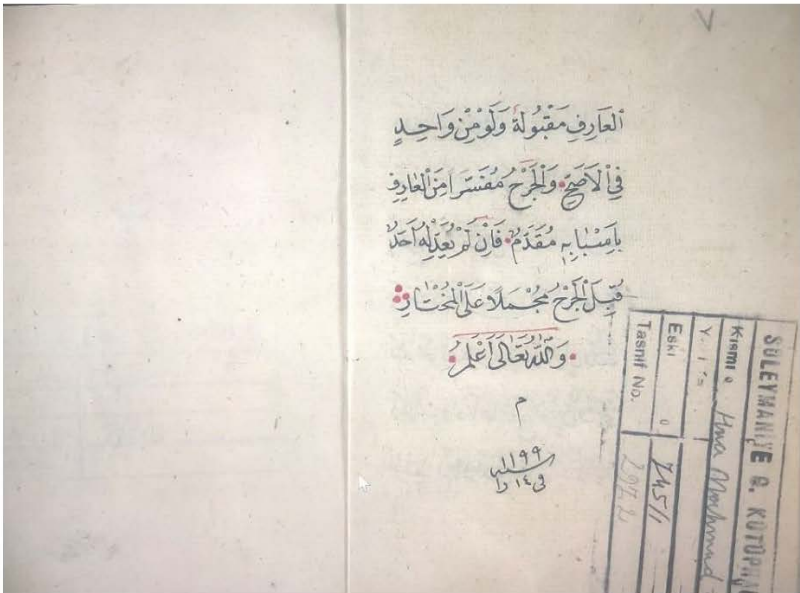 الْعَارِفِ مَقْبُولَةٌ وَلَوْ مِنْ وَاحِدٍ
فِي الْاَصَحِّ وَالْجَرْحُ مُفَسَّرًا مِنَ الْعَارِفِ
بِاَسْبَابِهِ مُقَدَّمٌ فَاِنْ لَمْ يُعَدِّلْهُ اَحَدٌ
قُبِلَ الْجَرْحُ مُجْمَلًا عَلَى الْمُخْتَارِ
وَاللّٰهُ تَعَالٰى اَعْلَمُ
م
سنة ١١٩٩
في ١٤ را
SÜLEYMANİYE G. KÜTÜPHANE
Kısmı
Mahmud
Eski
745/1
Tasnif No.
297.2